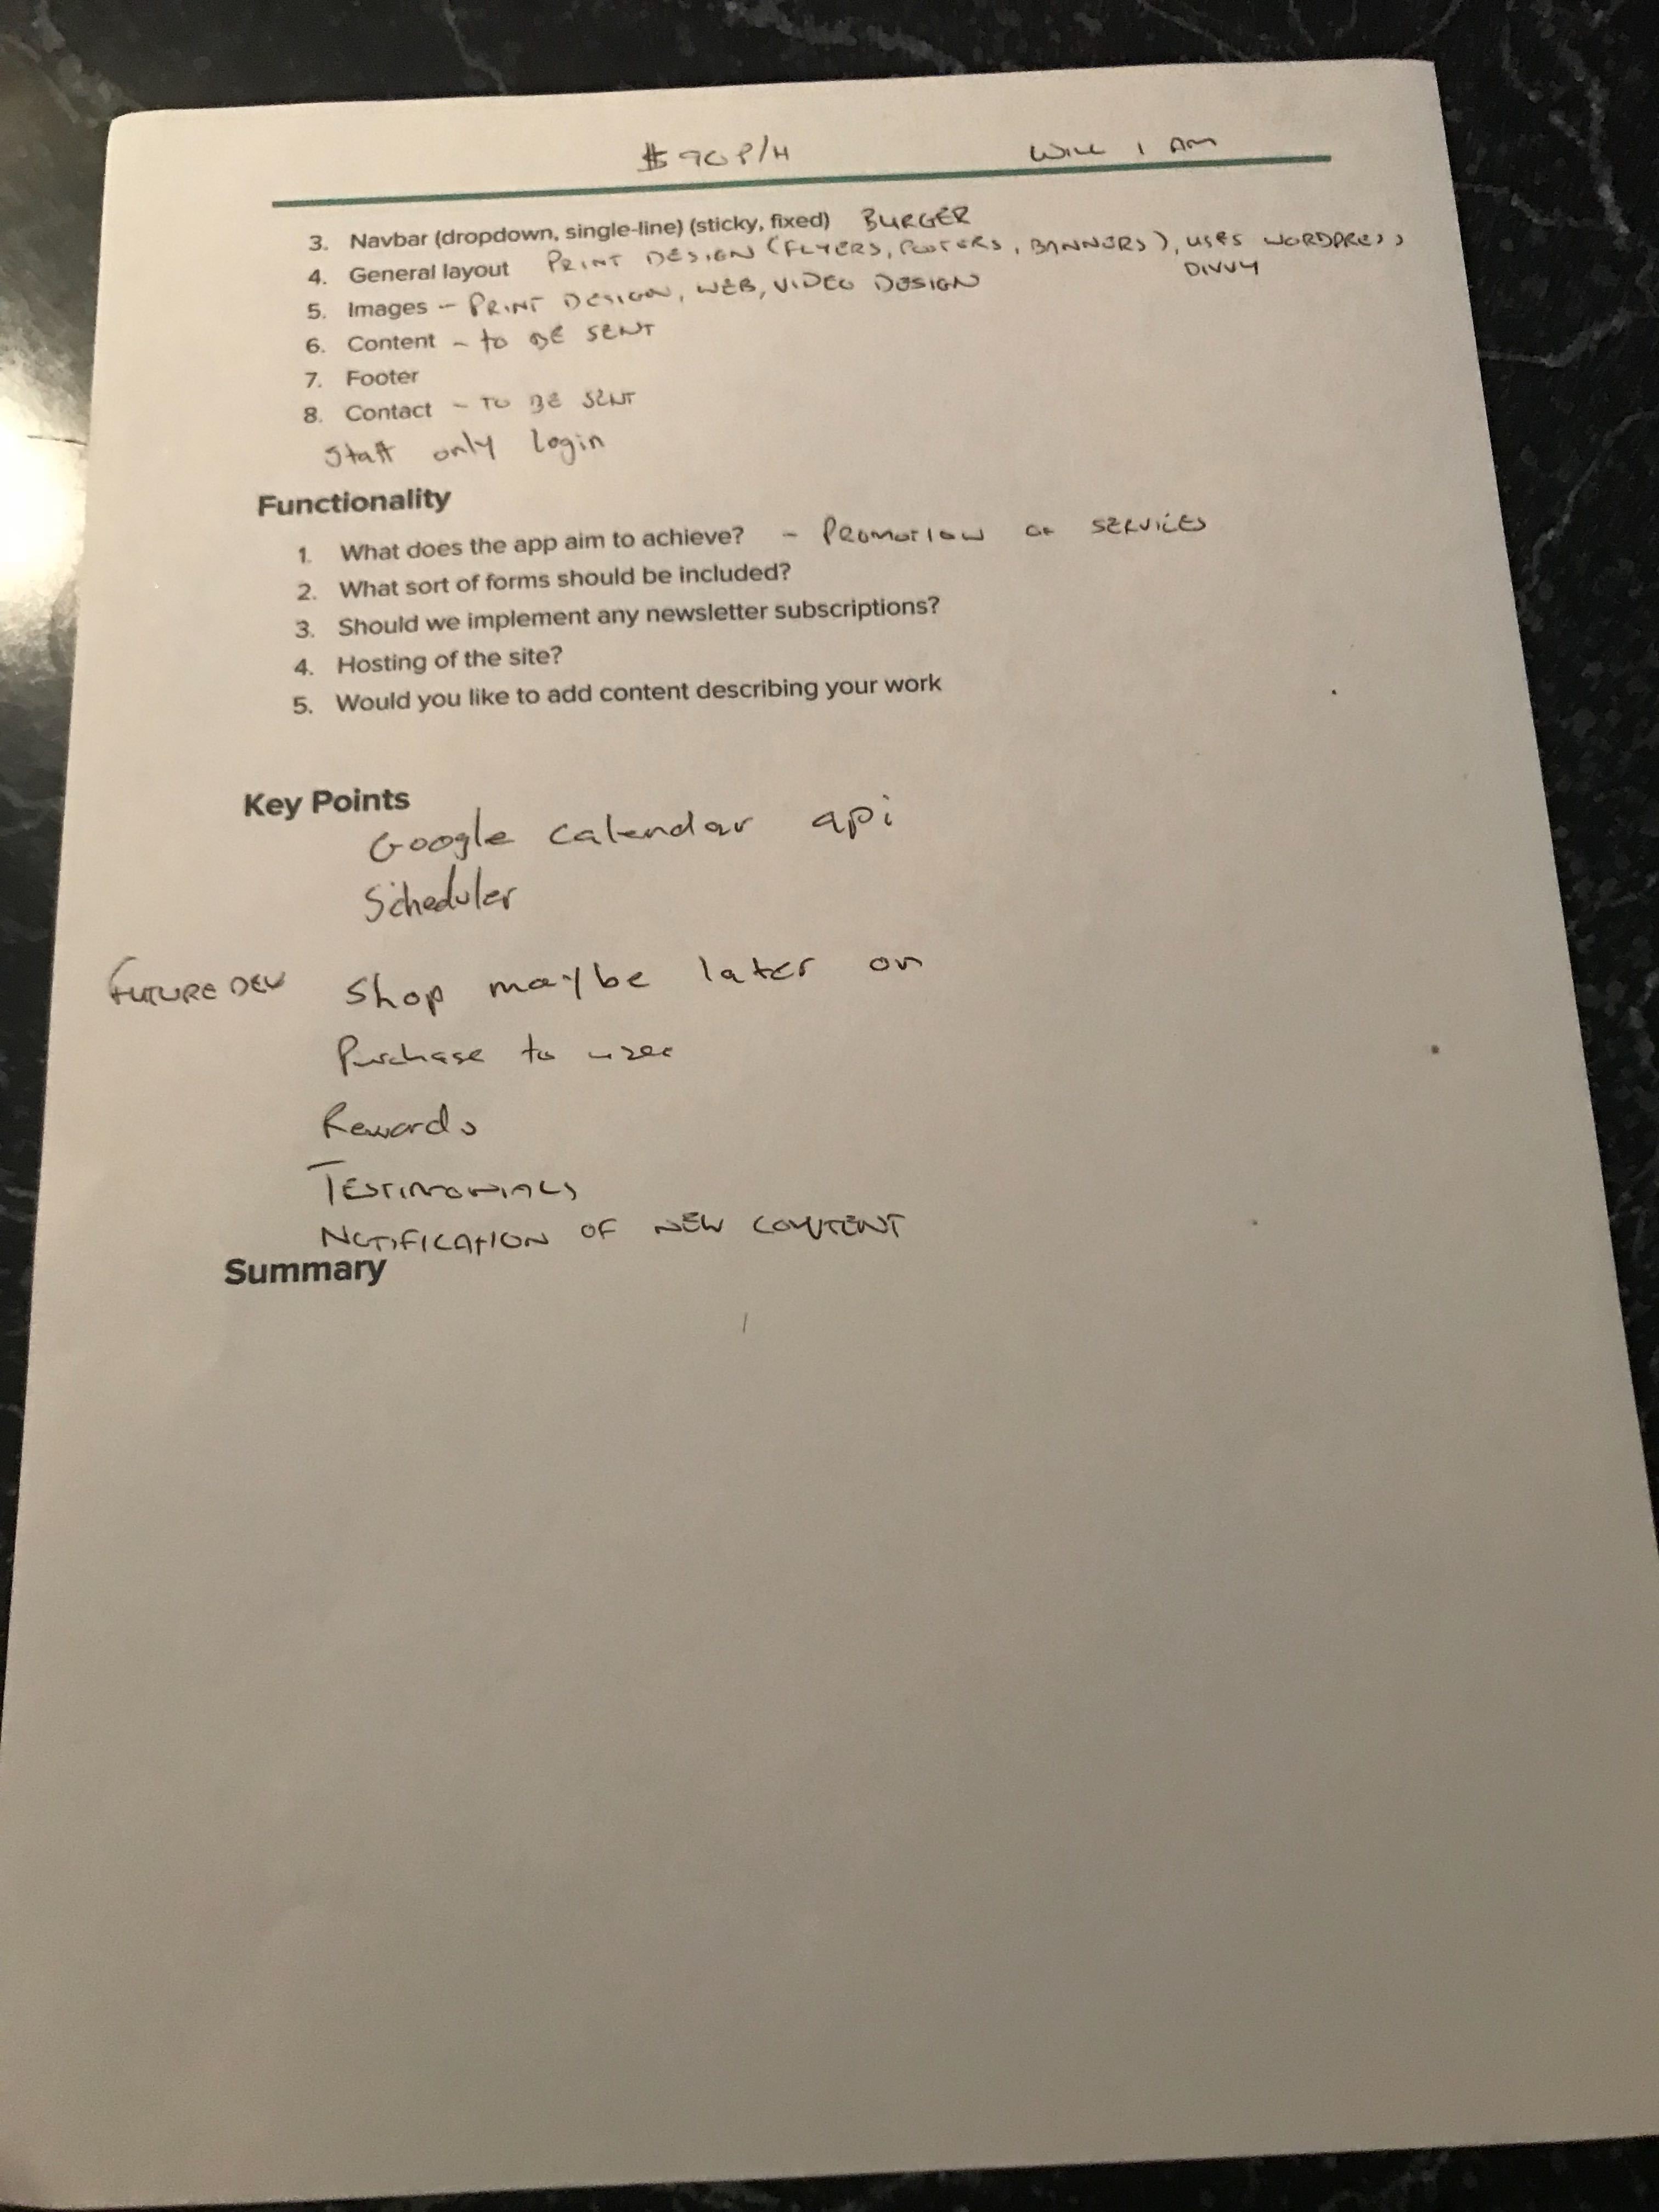 $90 P/H WILL I AM
3. Navbar (dropdown, single-line) (sticky, fixed) BURGER
4. General layout PRINT DESIGN (FLYERS, POSTERS, BANNERS), USES WORDPRESS
DIVVY
5. Images - PRINT DESIGN, WEB, VIDEO DESIGN
6. Content - to BE SENT
7. Footer
8. Contact - TO BE SENT
Staff only login
Functionality
1. What does the app aim to achieve? - PROMOTION OF SERVICES
2. What sort of forms should be included?
3. Should we implement any newsletter subscriptions?
4. Hosting of the site?
5. Would you like to add content describing your work
Key Points
Google calendar api
Scheduler
FUTURE DEV Shop maybe later on
Purchase to
Rewards
TESTIMONIALS
NOTIFICATION OF NEW CONTENT
Summary